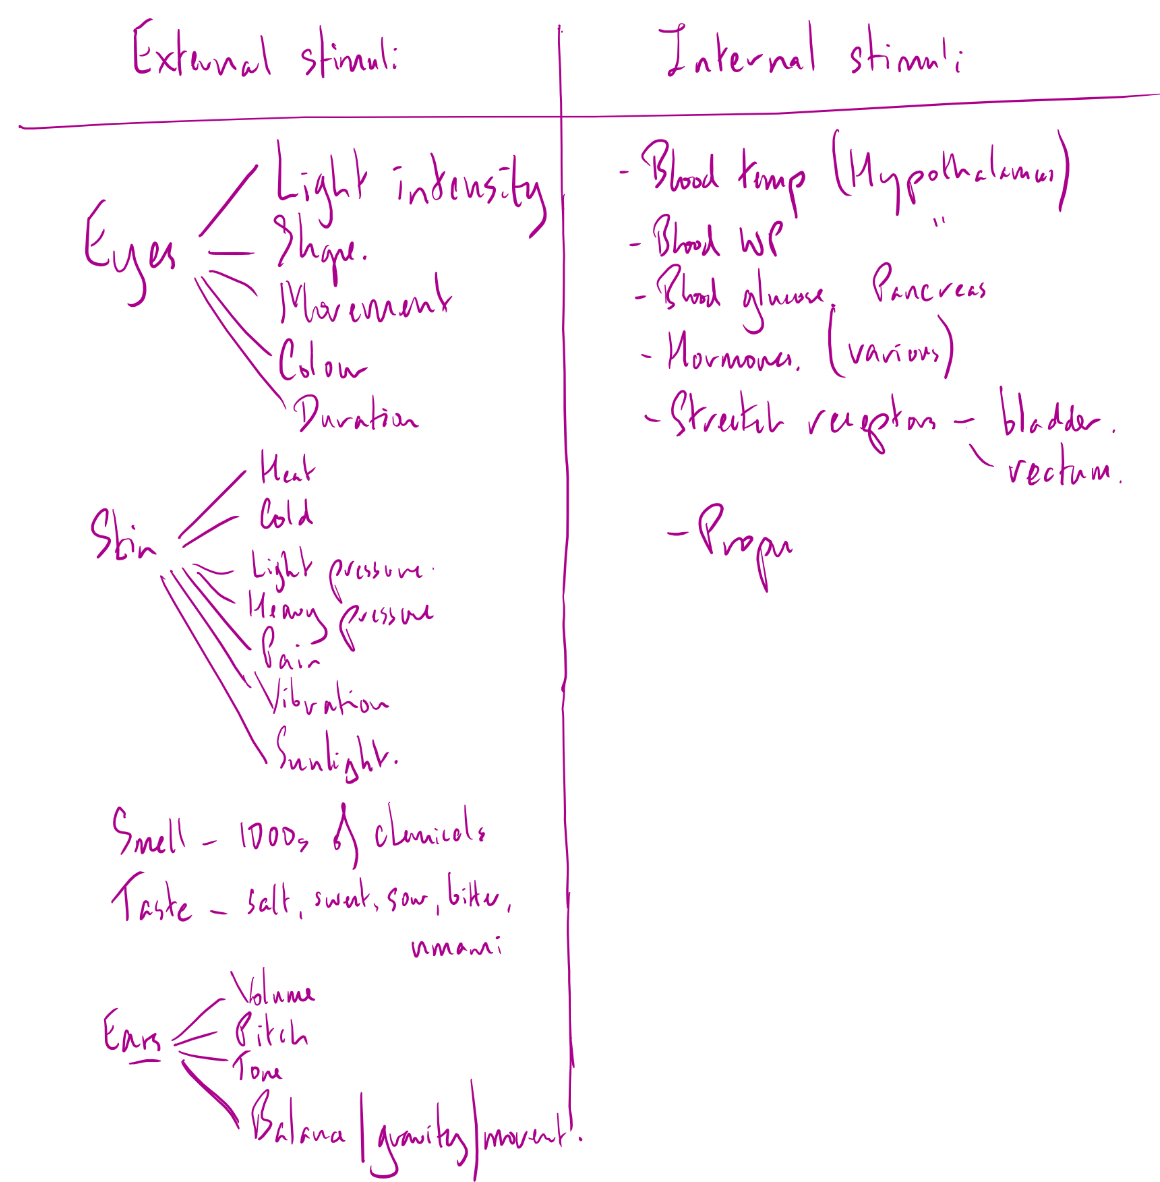 External stimuli
Eyes
Light intensity
Shape.
Movement
Colour
Duration
Skin
Heat
Cold
Light pressure.
Heavy pressure
Pain
Vibration
Sunlight.
Smell - 1000s of chemicals
Taste - salt, sweet, sour, bitter,
umami
Ears
Volume
Pitch
Tone
Balance/gravity/movent.
Internal stimuli
- Blood temp (Hypothalamus)
- Blood WP "
- Blood glucose. Pancreas
- Hormones. (various)
- Stretch receptors - bladder.
rectum.
- Propri